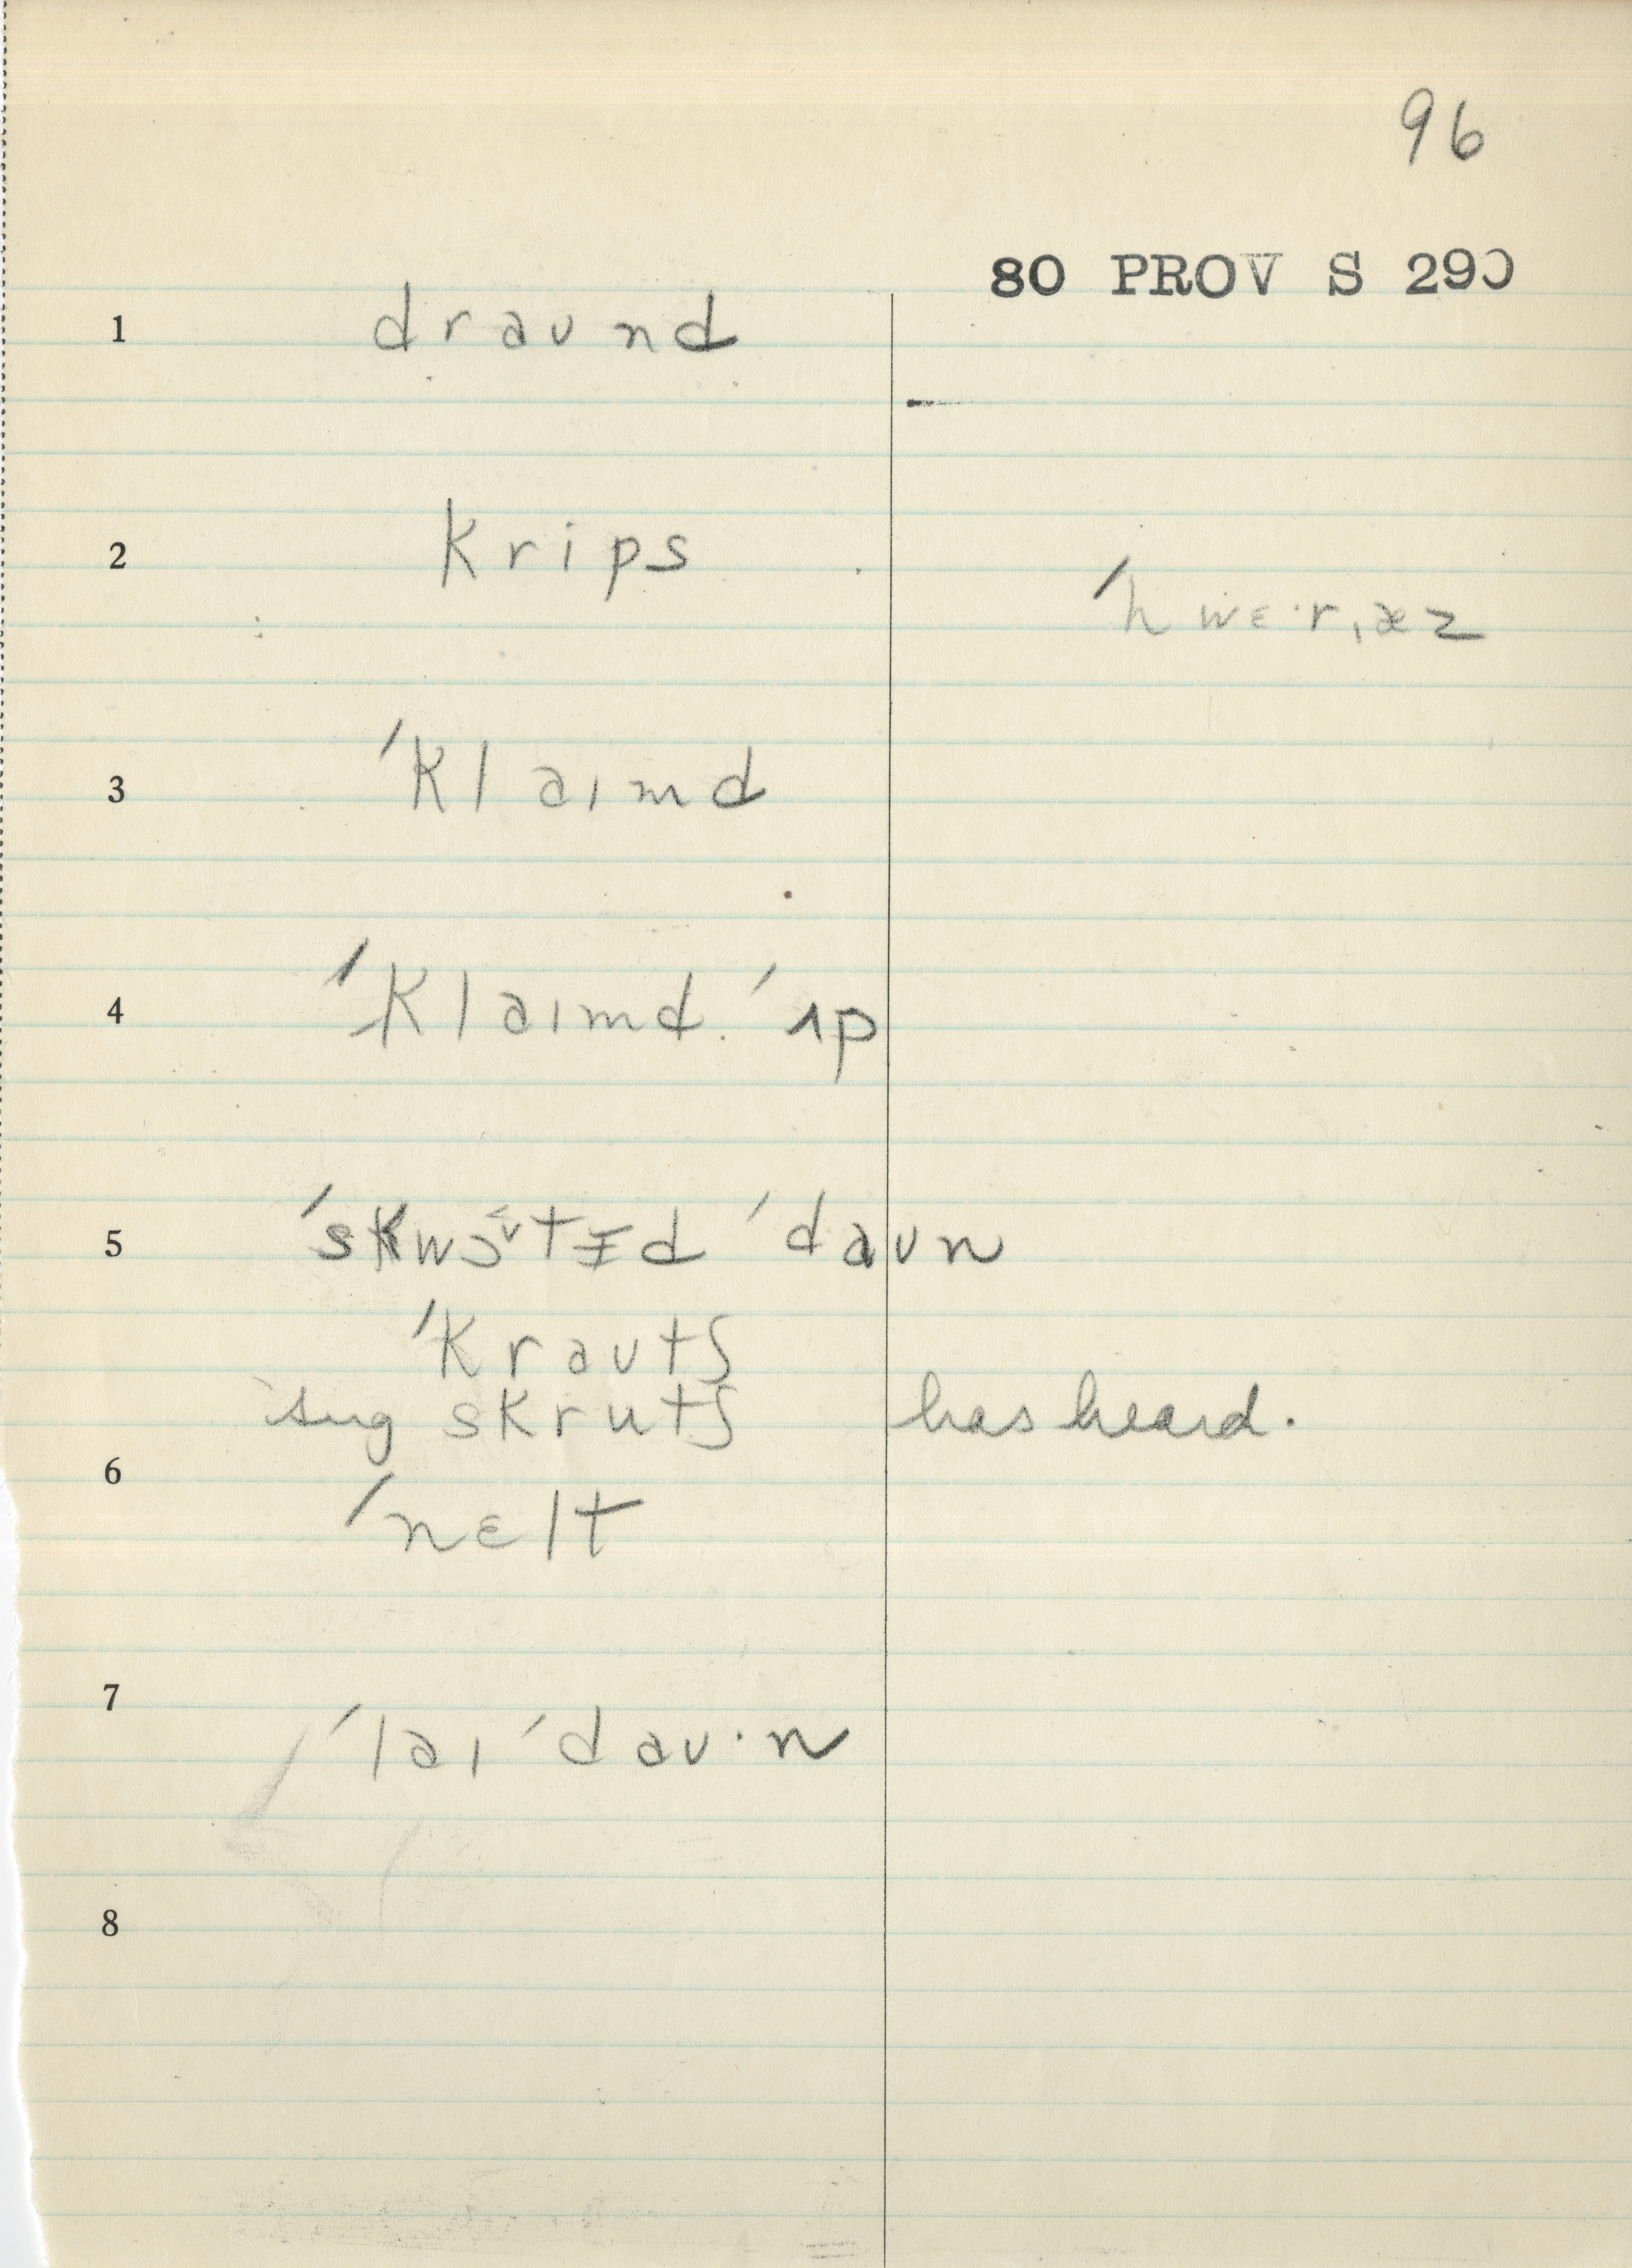 96
80 PROV S 290
1 draʊnd
2 krips
ˈhwɛ·rˌæz
3 ˈklaɪmd
4 ˈklaɪmd ˈʌp
5 ˈskwɔtɪd ˈdaʊn
ˈkraʊtʃ
sug skrutʃ has heard.
6
ˈnɛlt
7
ˈlaɪ ˈdaʊ·n
8